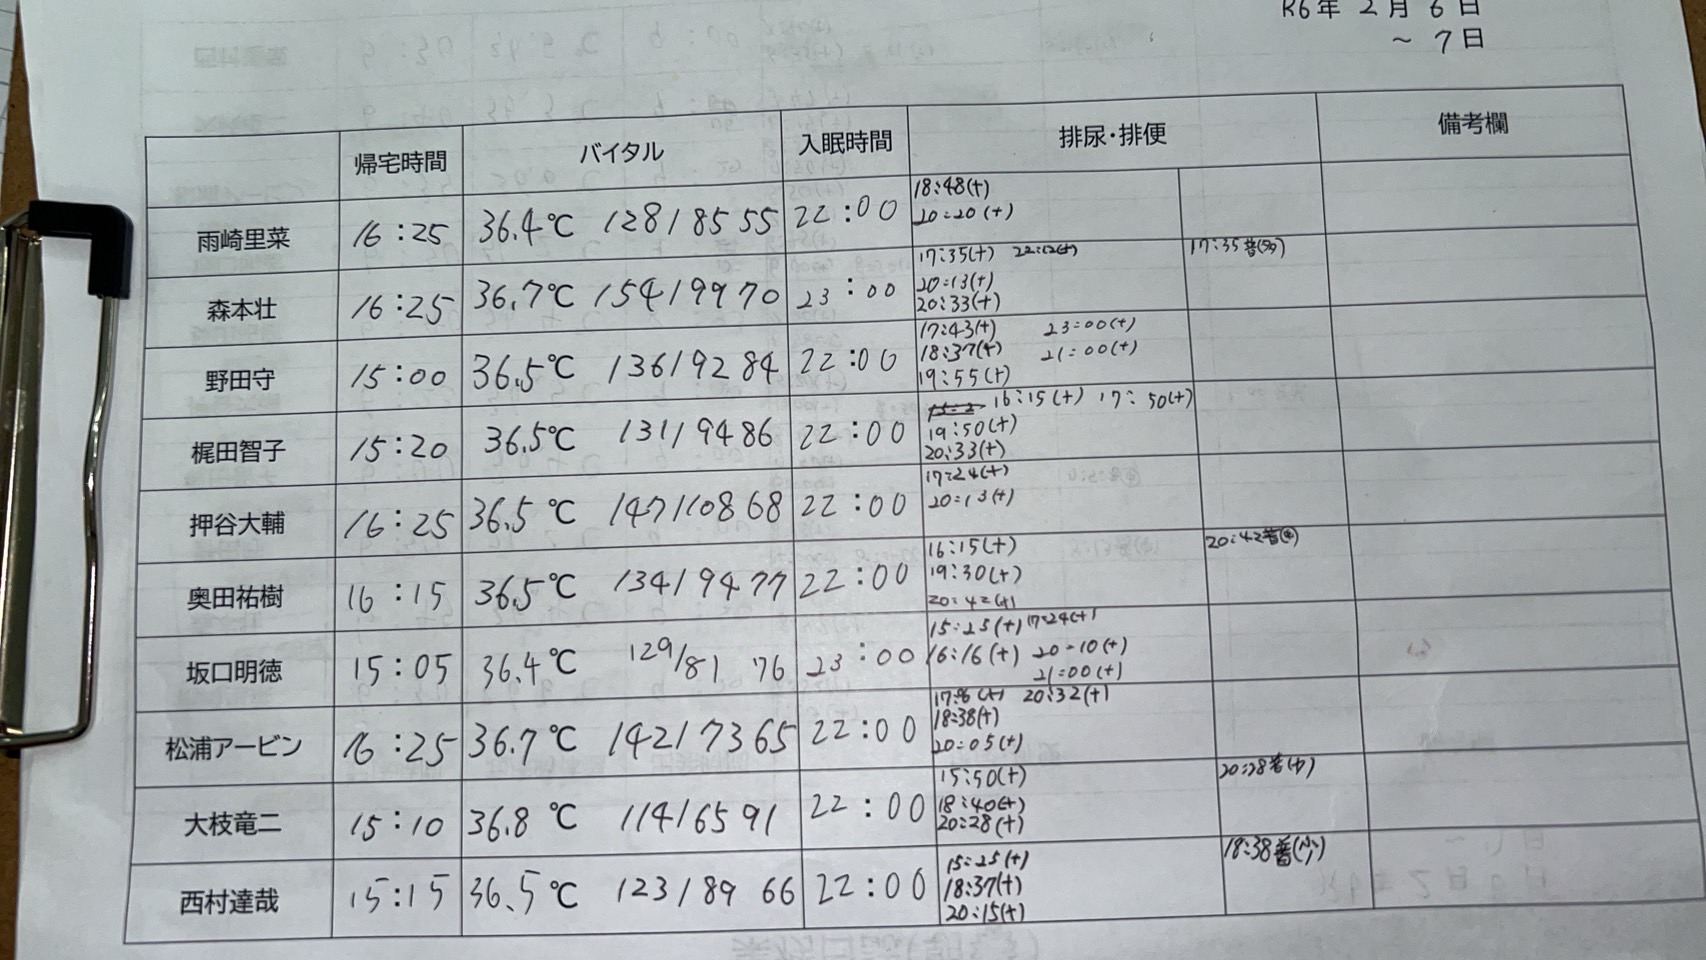 R6年 2月 6日
～ 7日
帰宅時間 バイタル 入眠時間 排尿・排便 備考欄
雨崎里菜 16:25 36.4℃ 128/85 55 22:00 18:48(+)
20:20(+)
森本壮 16:25 36.7℃ 154/99 70 23:00 17:35(+) 22:12(+) 17:35普
20:13(+)
20:33(+)
野田守 15:00 36.5℃ 136/92 84 22:00 17:43(+) 23:00(+)
18:37(+) 21:00(+)
19:55(+)
梶田智子 15:20 36.5℃ 131/94 86 22:00 16:15(+) 17:50(+)
19:50(+)
20:33(+)
押谷大輔 16:25 36.5℃ 147/108 68 22:00 17:24(+)
20:13(+)
奥田祐樹 16:15 36.5℃ 134/94 77 22:00 16:15(+) 20:42普
19:30(+)
20:42(+)
坂口明徳 15:05 36.4℃ 129/81 76 23:00 15:25(+) 17:24(+)
16:16(+) 20:10(+)
21:00(+)
松浦アービン 16:25 36.7℃ 142/73 65 22:00 20:32(+)
18:38(+)
20:05(+)
大枝竜二 15:10 36.8℃ 114/65 91 22:00 15:50(+) 20:28普(中)
18:40(+)
20:28(+)
西村達哉 15:15 36.5℃ 123/89 66 22:00 15:25(+) 18:38普(少)
18:37(+)
20:15(+)